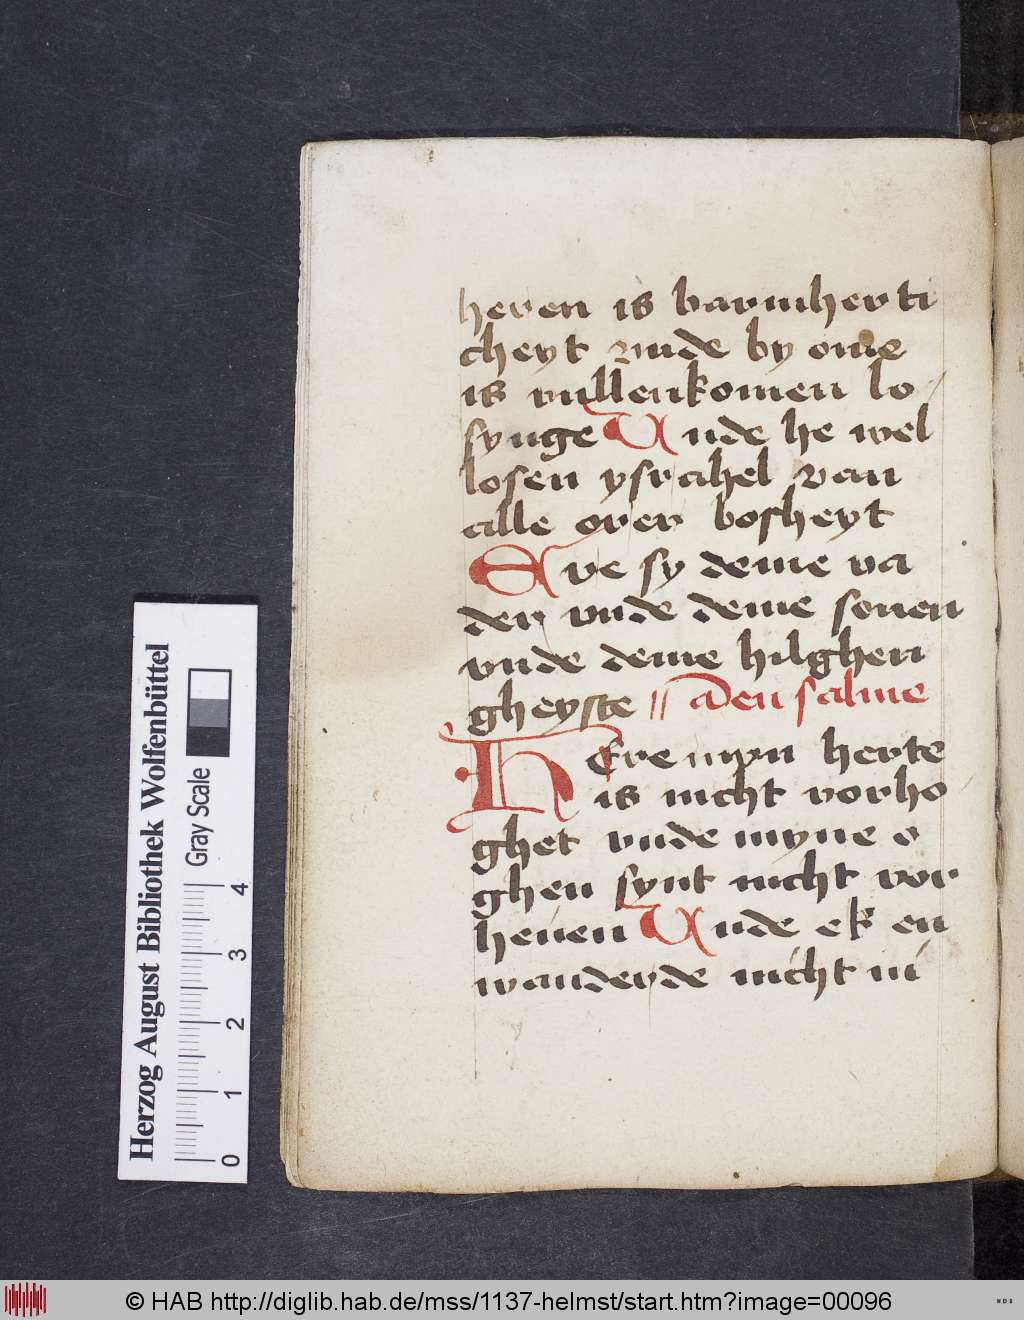 heren is barmherti
cheyt vnde by ome
is vullenkomen lo
synge Unde he wel
losen ysrahel van
alle orer bosheyt
Ere sy deme va
der vnde deme sonen
vnde deme hilghen
gheyste den salme
HEre myn herte
is nicht vorho
ghet vnde myne o
ghen synt nicht vor
heuen Unde ek en
wanderde nicht in
Herzog August Bibliothek Wolfenbüttel
Gray Scale
0 1 2 3 4
© HAB http://diglib.hab.de/mss/1137-helmst/start.htm?image=00096